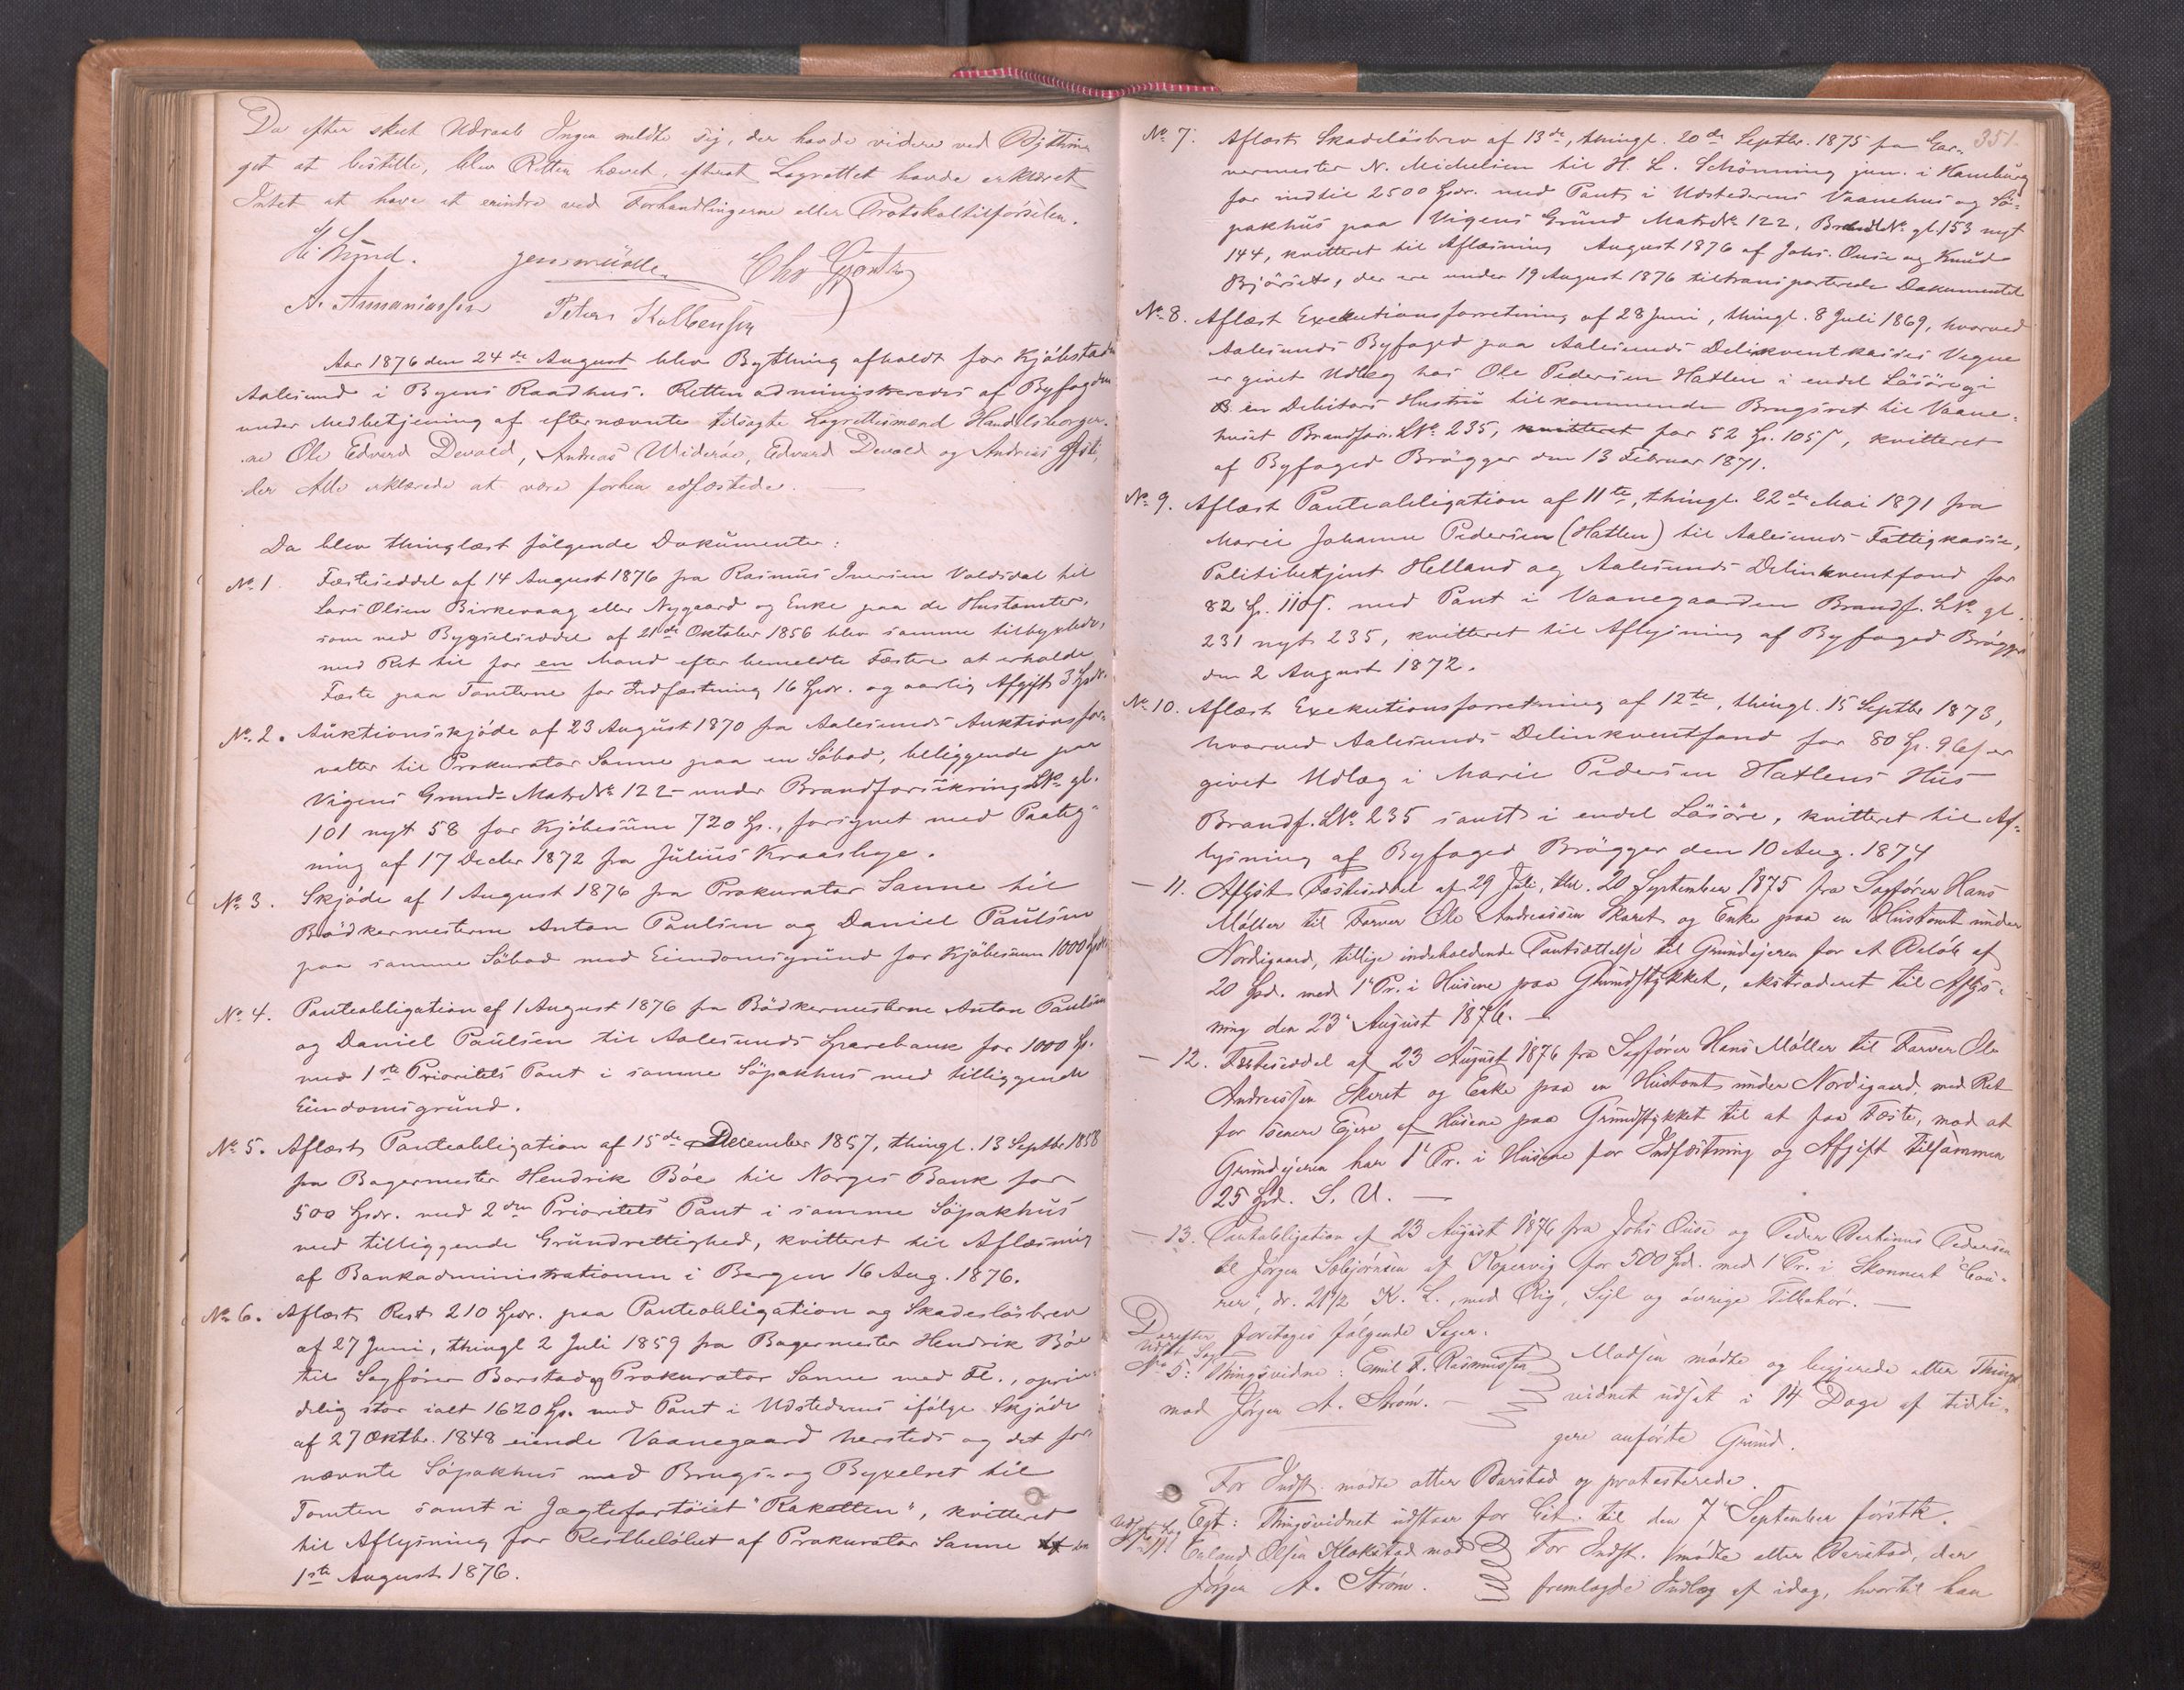 Da efter skeet Udraab Ingen meldte sig, der havde videre ved Bythin-
get at bestille, blev Retten hævet, efterat Lagrettet havde erklæret
Intet at have at erindre ved Forhandlingerne eller Protokoltilførslen.
H. Lund. Jensmüller Chr
A. Ananiassen Peter Kolbensen
Aar 1876 den 24de August blev Bything afholdt for Kjøbstaden
Aalesund i Byens Raadhus. Retten administreredes af Byfogden
under Medbetjening af efternævnte tilsagte Lagrettesmænd Handelsborger-
ne Ole Edvard Devold, Andreas Widerøe, Edvard Devold og Andreas
der Alle erklærede at være forhen edfæstede.
Da blev thinglæst følgende Dokumenter:
No. 1. Fæsteseddel af 14 August 1876 fra Rasmus Iversen Valdsdal til
Lars Olsen Birkevaag eller Nygaard og Enke paa de Hustomter,
som ved Bygselseddel af 21de Oktober 1856 blev samme tilbyxlede,
med Ret til for en Mand efter bemeldte Fæstere at erholde
Fæste paa Tomterne for Indfæstning 16 Spdr. og aarlig Afgift 3 Spdr.
No. 2. Auktionsskjøde af 23 August 1870 fra Aalesunds Auktionsfor-
valter til Prokurator Sanne paa en Søbod, beliggende paa
Vigens Grund- Matr. No. 122 - under Brandforsikrings LNo. gl.
101 nyt 58 for Kjøbesum 720 Sp., forsynet med Paateg-
ning af 17 Decbr 1872 fra Julius Kraashage.
No. 3. Skjøde af 1 August 1876 fra Prokurator Sanne til
Bødkermesterne Anton Paulsen og Daniel Paulsen
paa samme Søbod med Eiendomsgrund for Kjøbesum 1000 Spdr.
No. 4. Panteobligation af 1 August 1876 fra Bødkermesterne Anton Paulsen
og Daniel Paulsen til Aalesunds Sparebank for 1000 Sp.
med 1ste Prioritets Pant i samme Søpakhus med tilliggende
Eiendomsgrund.
No. 5. Aflæst Panteobligation af 15de December 1857, thingl. 13 Septbr 1858
fra Bagermester Hendrik Bøe til Norges Bank for
500 Spdr. med 2den Prioritets Pant i samme Søpakhus
med tilliggende Grundrettighed, kvitteret til Aflæsning
af Bankadministrationen i Bergen 16 Aug. 1876.
No. 6. Aflæst Rest 210 Spdr. paa Panteobligation og Skadesløsbrev
af 27 Juni, thingl 2 Juli 1859 fra Bagermester Hendrik Bøe
til Sagfører Barstad og Prokurator Sanne med Fl., oprin-
delig stor ialt 1620 Sp. med Pant i Udstederens ifølge Skjøde
af 27 Oktbr. 1848 eiende Vaanegaard hersteds og det for-
nævnte Søpakhus med Brugs- og Byxelret til
Tomten samt i Jægtefartøiet "Raketten", kvitteret
til Aflysning for Restbeløbet af Prokurator Sanne den
1ste August 1876.
351.
No. 7. Aflæst Skadesløsbrev af 13de, thingl. 20de Septbr. 1875 fra Gar-
vermester N. Michelsen til H. L. Schönning jun. i Hamburg
for indtil 2500 Spdr. med Pant i Udstederens Vaanehus og Sø-
pakhus paa Vigens Grund Matr. No. 122, Brandf. No. gl. 153 nyt
144, kvitteret til Aflæsning August 1876 af Johs. Ouse og Knud
Bjørseth, der ere under 19 August 1876 tiltransporterede Dokumentet
No. 8. Aflæst Exekutionsforretning af 28 Juni, thingl. 8 Juli 1869, hvorved
Aalesunds Byfoged paa Aalesunds Delinkventkasses Vegne
er givet Udlæg hos Ole Pedersen Hatlen i endel Løsøre og i
en Debitors Hustru tilkommende Brugsret til Vaane-
huset Brandfor. LNo. 235, kvitteret for 52 Sp. 105 s, kvitteret
af Byfoged Brøgger den 13 Februar 1871.
No. 9. Aflæst Panteobligation af 11te, thingl. 22de Mai 1871 fra
Marie Johanne Pedersen (Hatlen) til Aalesunds Fattigkasse,
Politibetjent Helland og Aalesunds Delinkventfond for
82 Sp. 110 s. med Pant i Vaanegaarden Brandf. LNo. gl.
231 nyt 235, kvitteret til Aflysning af Byfoged Brøgger
den 2 August 1872.
No. 10. Aflæst Exekutionsforretning af 12te, thingl. 15 Septbr 1873,
hvorved Aalesunds Delinkventfond for 80 Sp. 96 s er
givet Udlæg i Marie Pedersen Hatlens Hus
Brandf. LNo. 235 samt i endel Løsøre, kvitteret til Af-
lysning af Byfoged Brøgger den 10 Aug. 1874
- 11. Aflyst Fæsteseddel af 29 Juli, thl. 20 September 1875 fra Sagfører Hans
Møller til Farver Ole Andreassen Skaret og Enke paa en Hustomt under
Nordigaard, tillige indeholdende Pantsættelse til Grundejeren for et Beløb af
20 Spd. med 1' Pr. i Husene paa Grundstykket, ekstraderet til Aflys-
ning den 23' August 1876. -
- 12. Fæsteseddel af 23 August 1876 fra Sagfører Hans Møller til Farver Ole
Andreassen Skaret og Enke paa en Hustomt under Nordigaard, med Ret
for senere Ejere af Husene paa Grundstykket til at faa Fæste, mod at
Grundejeren har 1' Pr. i Husene for Indfæstning og Afgift tilsammen
25 Spd. S. U. -
- 13. Pantobligation af 23 August 1876 fra Johs Ouse og Peder Bertinus Pedersen
til Jørgen Sæbjørnsen af Kopervig for 500 Spd. med 1' Pr. i Skonnert "Cou-
rer", dr. 21 1/2 K. L., med Rig, Sejl og øvrige Tilbehør. -
Derefter foretoges følgende Sager.
Udsat Sag
No 5: Thingsvidne: Emil F. Rasmussen Madsen mødte og begjerede atter Things-
mod Jørgen A. Strøm. - vidnet udsat i 14 Dage af tidli-
gere anførte Grund.
For Indst. mødte atter Barstad og protesterede.
Egt: Thingsvidnet udstaar for Cit. til den 7' September førstk.
Udsat Sag
Erland Olsen Klokstad mod For Indst. mødte atter Barstad, der
Jørgen A. Strøm. fremlagde Indlæg af idag, hvortil han